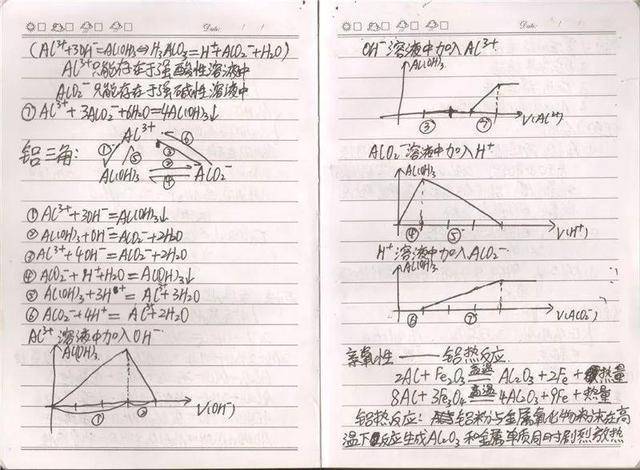 Date: / /
(Al³⁺+3OH⁻=Al(OH)₃⇔H₃AlO₃=H⁺+AlO₂⁻+H₂O)
Al³⁺只能存在于强酸性溶液中
AlO₂⁻只能存在于强碱性溶液中
⑦Al³⁺+3AlO₂⁻+6H₂O=4Al(OH)₃↓
铝三角:
Al³⁺
① ⑤ ③ ② ④ ⑥
Al(OH)₃ AlO₂⁻
①Al³⁺+3OH⁻=Al(OH)₃↓
②Al(OH)₃+OH⁻=AlO₂⁻+2H₂O
③Al³⁺+4OH⁻=AlO₂⁻+2H₂O
④AlO₂⁻+H⁺+H₂O=Al(OH)₃↓
⑤Al(OH)₃+3H⁺=Al³⁺+3H₂O
⑥AlO₂⁻+4H⁺=Al³⁺+2H₂O
Al³⁺溶液中加入OH⁻
Al(OH)₃
① ②
V(OH⁻)
Date: / /
OH⁻溶液中加入Al³⁺
Al(OH)₃
③ ⑦
V(Al³⁺)
AlO₂⁻溶液中加入H⁺
Al(OH)₃
④ ⑤
V(H⁺)
H⁺溶液中加入AlO₂⁻
Al(OH)₃
⑥ ⑦
V(AlO₂⁻)
亲氧性——铝热反应
2Al+Fe₂O₃ 高温 Al₂O₃+2Fe+热量
8Al+3Fe₃O₄ 高温 4Al₂O₃+9Fe+热量
铝热反应: 铝粉与金属氧化物粉末在高
温下反应生成Al₂O₃和金属单质同时剧烈放热